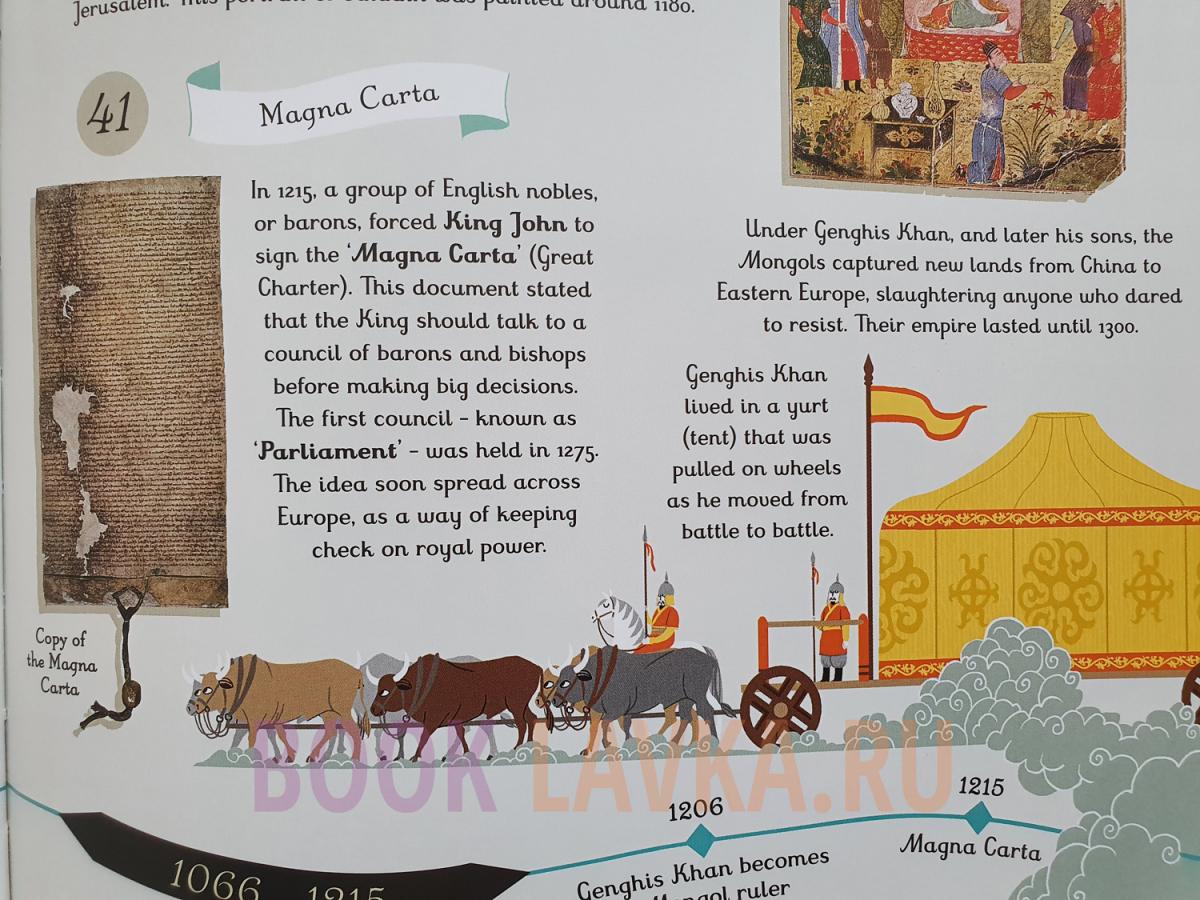 Jerusalem. This portrait of Saladin was painted around 1180.
41
Magna Carta
In 1215, a group of English nobles,
or barons, forced King John to
sign the ‘Magna Carta’ (Great
Charter). This document stated
that the King should talk to a
council of barons and bishops
before making big decisions.
The first council – known as
‘Parliament’ – was held in 1275.
The idea soon spread across
Europe, as a way of keeping
check on royal power.
Copy of
the Magna
Carta
Under Genghis Khan, and later his sons, the
Mongols captured new lands from China to
Eastern Europe, slaughtering anyone who dared
to resist. Their empire lasted until 1300.
Genghis Khan
lived in a yurt
(tent) that was
pulled on wheels
as he moved from
battle to battle.
BOOK LAVKA.RU
1066 1215
1206
Genghis Khan becomes
Mongol ruler
1215
Magna Carta